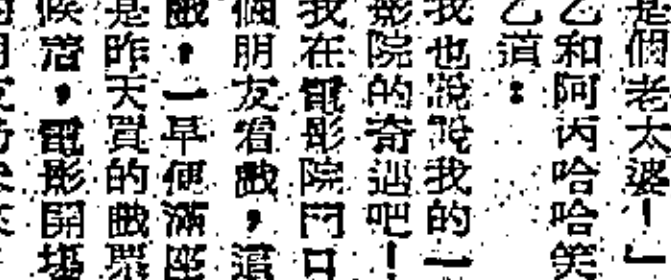 是個老太婆！」
乙和阿丙哈哈笑
乙道：
我也說說我的一
影院的奇遇吧！
我在電影院門口
個朋友看戲，這
戲，一早便滿座
是昨天買的戲票
候着，電影開場